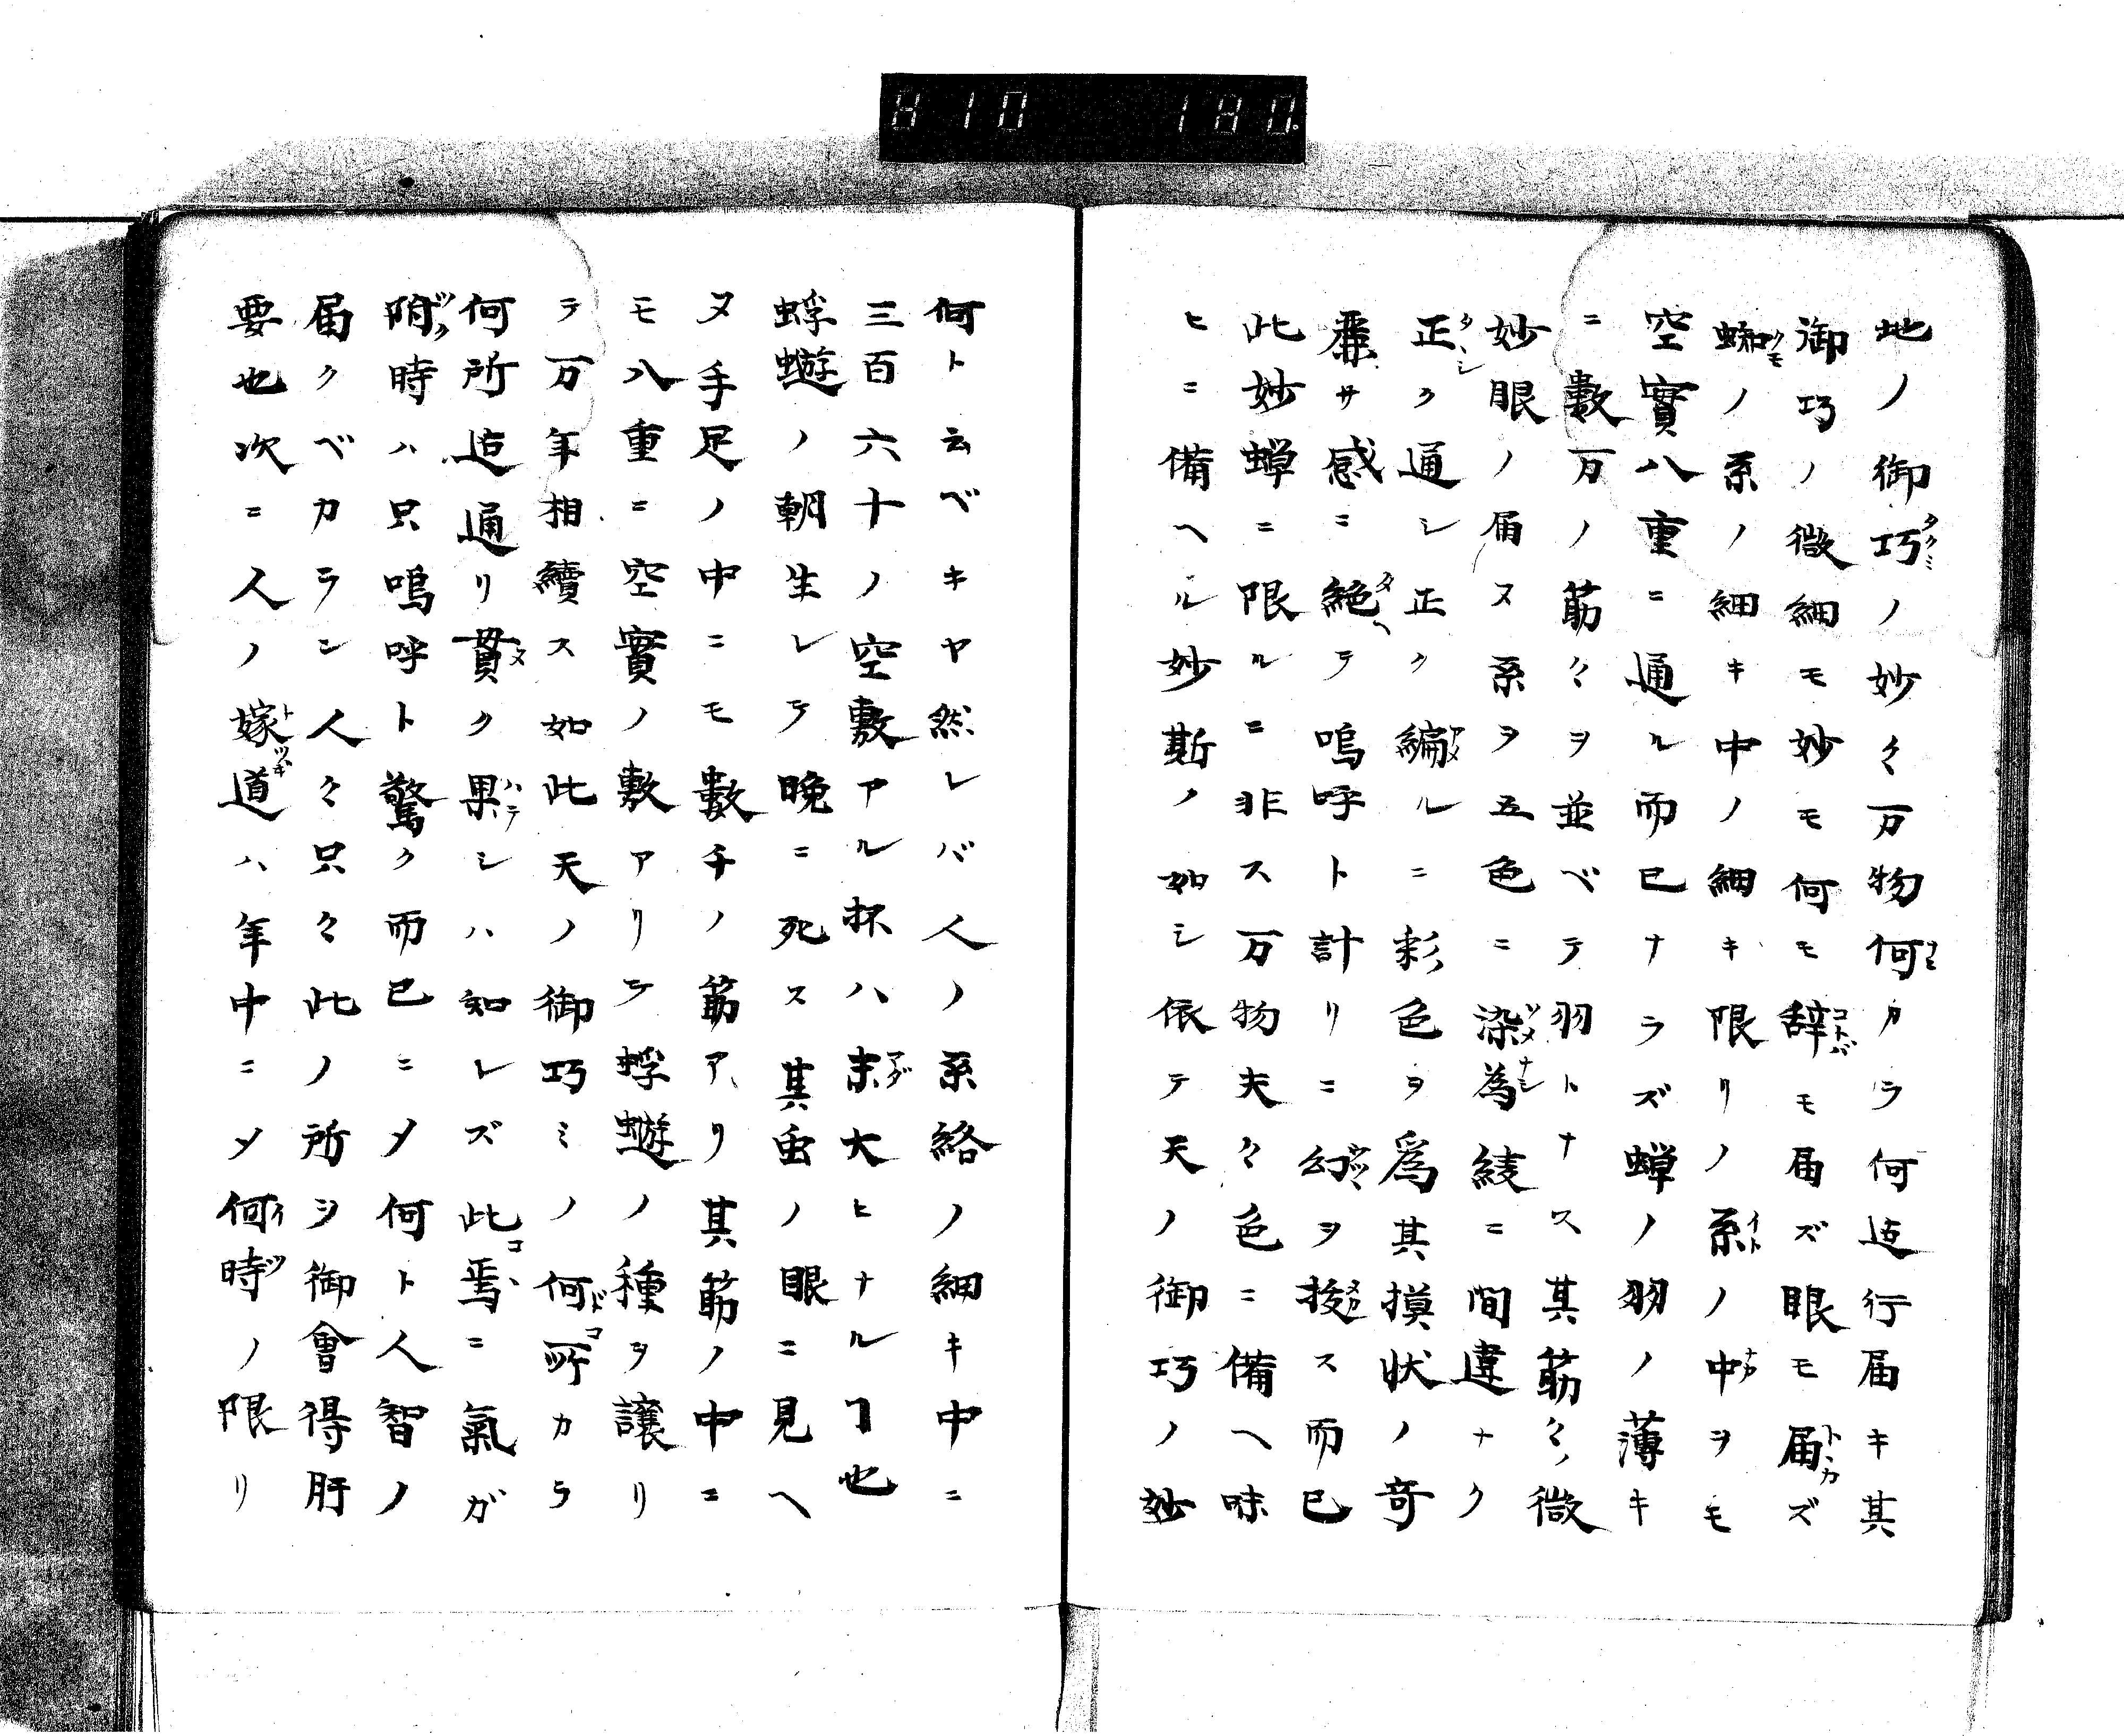 地ノ御巧ノ妙々万物何カラ何迠行届キ其
御巧ノ微細モ妙モ何モ辞モ届ズ眼モ届ズ
蜘ノ系ノ細キ中ノ細キ限リノ系ノ中ヲモ
空實八重ニ通ル而已ナラズ蟬ノ羽ノ薄キ
ニ數万ノ筋々ヲ並ベテ羽トナス其筋々微
妙眼ノ届ヌ系ヲ五色ニ染為綾ニ間違ナク
正ク通シ正ク編ルニ彩色ヲ爲其摸状ノ奇
麗サ感ニ絶テ嗚呼ト計リニ幻ヲ擬ス而已
此妙蟬ニ限ルニ非ス万物夫々色ニ備ヘ味
ヒニ備ヘル妙斯ノ如シ依テ天ノ御巧ノ妙
何ト云ベキヤ然レバ人ノ系絡ノ細キ中ニ
三百六十ノ空數アル抔ハ大ヒナルヿ也
蜉蝣ノ朝生レテ晩ニ死ス其虫ノ眼ニ見ヘ
ヌ手足ノ中ニモ數千ノ筋アリ其筋ノ中ニ
モ八重ニ空實ノ數アリテ蜉蝣ノ種ヲ譲リ
テ万年相續ス如此天ノ御巧ミノ何所カラ
何所迠通リ貫ク果シハ知レズ此焉ニ氣ガ
附時ハ只嗚呼ト驚ク而已ニ〆何ト人智ノ
届クベカラン人々只々此ノ所ヲ御會得肝
要也次ニ人ノ嫁道ハ年中ニ〆何時ノ限リ
H10 180.